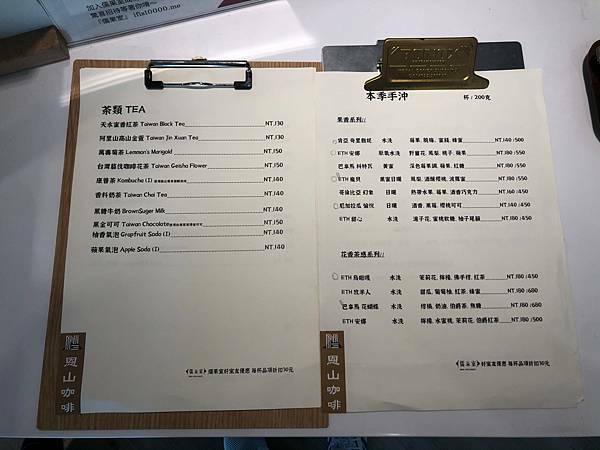 加入儒果室
驚喜招待等著你唷～
『儒果室』 ifis10000.me
茶類 TEA
天水蜜香紅茶 Taiwan Black Tea NT.130
阿里山高山金萱 Taiwan Jin Xuan Tea NT.130
萬壽菊茶 Lemmon's Marigold NT.150
台灣藝伎咖啡花茶 Taiwan Geisha Flower NT.150
康普茶 Kombucha (I) NT.140
香料奶茶 Taiwan Chai Tea NT.140
黑糖牛奶 BrownSuger Milk NT.140
黑金可可 Taiwan Chocolate NT.150
柚香氣泡 Grapfruit Soda (I) NT.140
蘋果氣泡 Apple Soda (I) NT.140
恩山咖啡
本季手沖
杯/200克
果香系列||
肯亞 水洗 莓果, 蜜糖, 蜂蜜 NT.140/500
ETH 安娜 厭氧水洗 野薑花, 鳳梨, 桃子, 蘋果 NT.180/550
巴拿馬 柯特瓦 黃蜜 深色莓果調, 蘋果, 紅糖 NT.180/550
ETH 魔貝 果蜜日曬 鳳梨, 酒釀櫻桃, 波羅蜜 NT.180/550
哥倫比亞 幻象 日曬 熱帶水果, 莓果, 酒香巧克力 NT.160/450
尼加拉瓜 愉悅 日曬 酒香, 黑莓, 櫻桃可可 NT.140/500
ETH 甜心 水洗 梔子花, 蜜桃軟糖, 柚子尾韻 NT.180/550
花香茶感系列||
ETH 烏蝴嘎 水洗 茉莉花, 檸檬, 佛手柑, 紅茶 NT.180/450
ETH 牧羊人 水洗 甜瓜, 葡萄柚, 紅茶, 蜂蜜 NT.180/680
巴拿馬 花蝴蝶 水洗 柑橘, 奶油, 伯爵茶, 焦糖 NT.180/680
ETH 安娜 水洗 檸檬, 水蜜桃, 茉莉花, 伯爵紅茶 NT.180/500
好室友優惠 每杯品項折扣30元
恩山咖啡